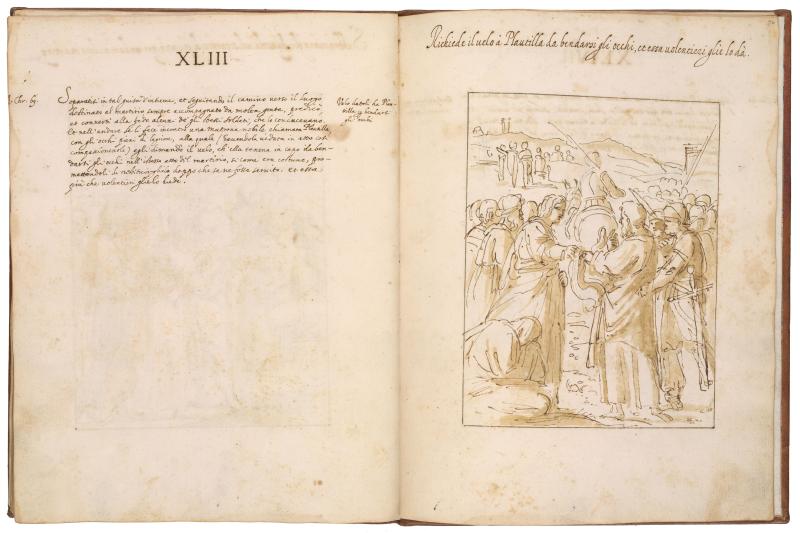 XLIII
Chr. 69.
Separatisi in tal guisa d'intieme, et seguitando il camino verso il luogo
destinato al martirio sempre accompagnato da molta gente, predicò
et convertì alla fede alcuni de gli stessi soldati, che lo conducevano.
Et nell'andare se li fece incontro una matrona nobile chiamata Plautilla
con gli occhi pieni di lagrime, alla quale
egli dimandò il velo, ch'ella teneva in capo da ben-
darsi gli occhi nell' atto del martirio, si come era costume, pro-
mettendoli di restituirglielo doppo che se ne fosse servito. et essa
più che volentieri glielo diede.
Velo datoli da Plau-
tilla p bendarsi
gli occhi
Richiede il velo à Plautilla da bendarsi gli occhi, et essa volentieri glie lo dà.